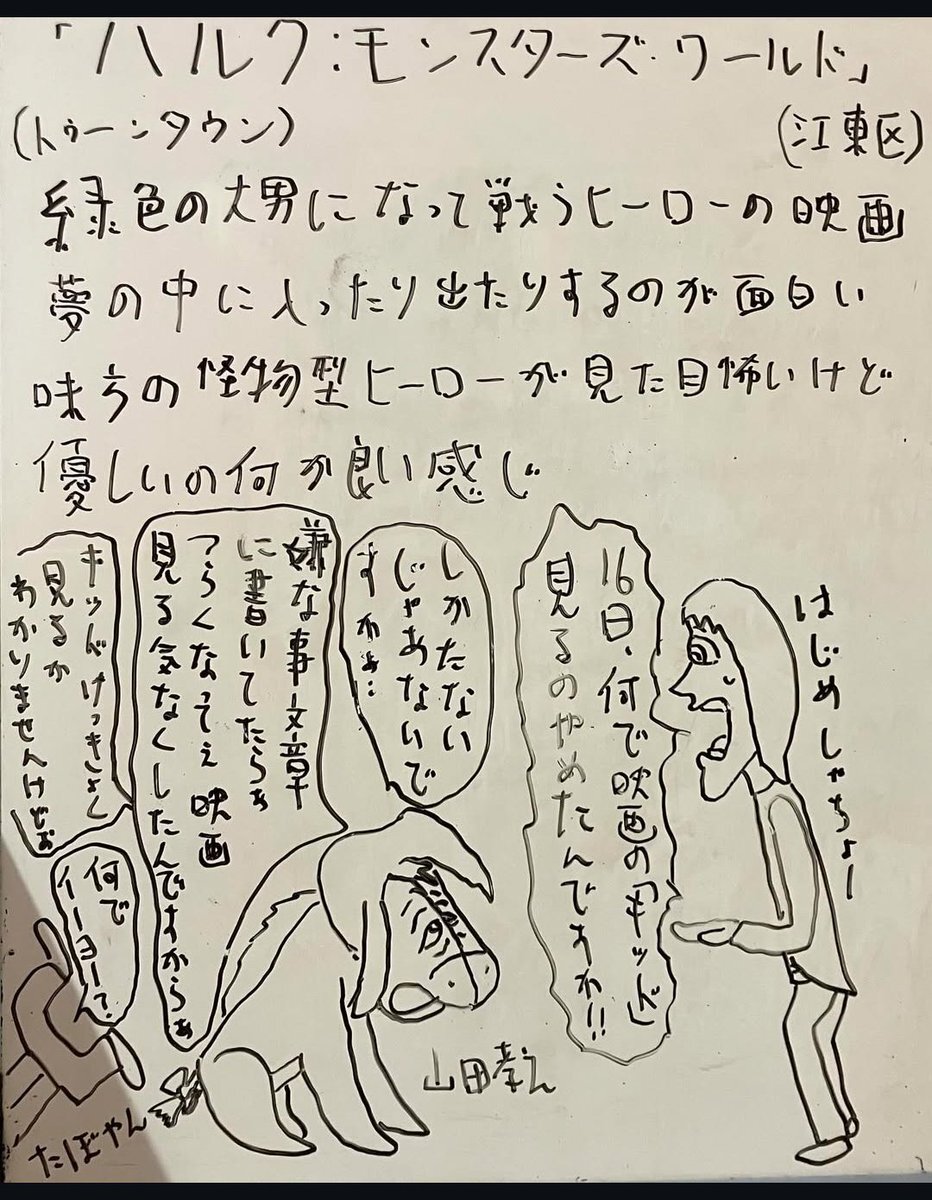 「ハルク:モンスターズ・ワールド」
(トゥーンタウン)
(江東区)
緑色の大男になって戦うヒーローの映画
夢の中に入ったり出たりするのが面白い
味方の怪物型ヒーローが見た目怖いけど
優しいの何か良い感じ
はじめしゃちょー
16日、何で映画の『キッド』
見るのやめたんですか!!
しかたない
じゃあないで
すかぁ…
嫌な事文章
に書いてたらぁ
つらくなってぇ映画
見る気なくしたんですからぁ
キッドけっきょく
見るか
わかりませんけどぉ
何で
イーヨーて.
山田孝之
たぼやん